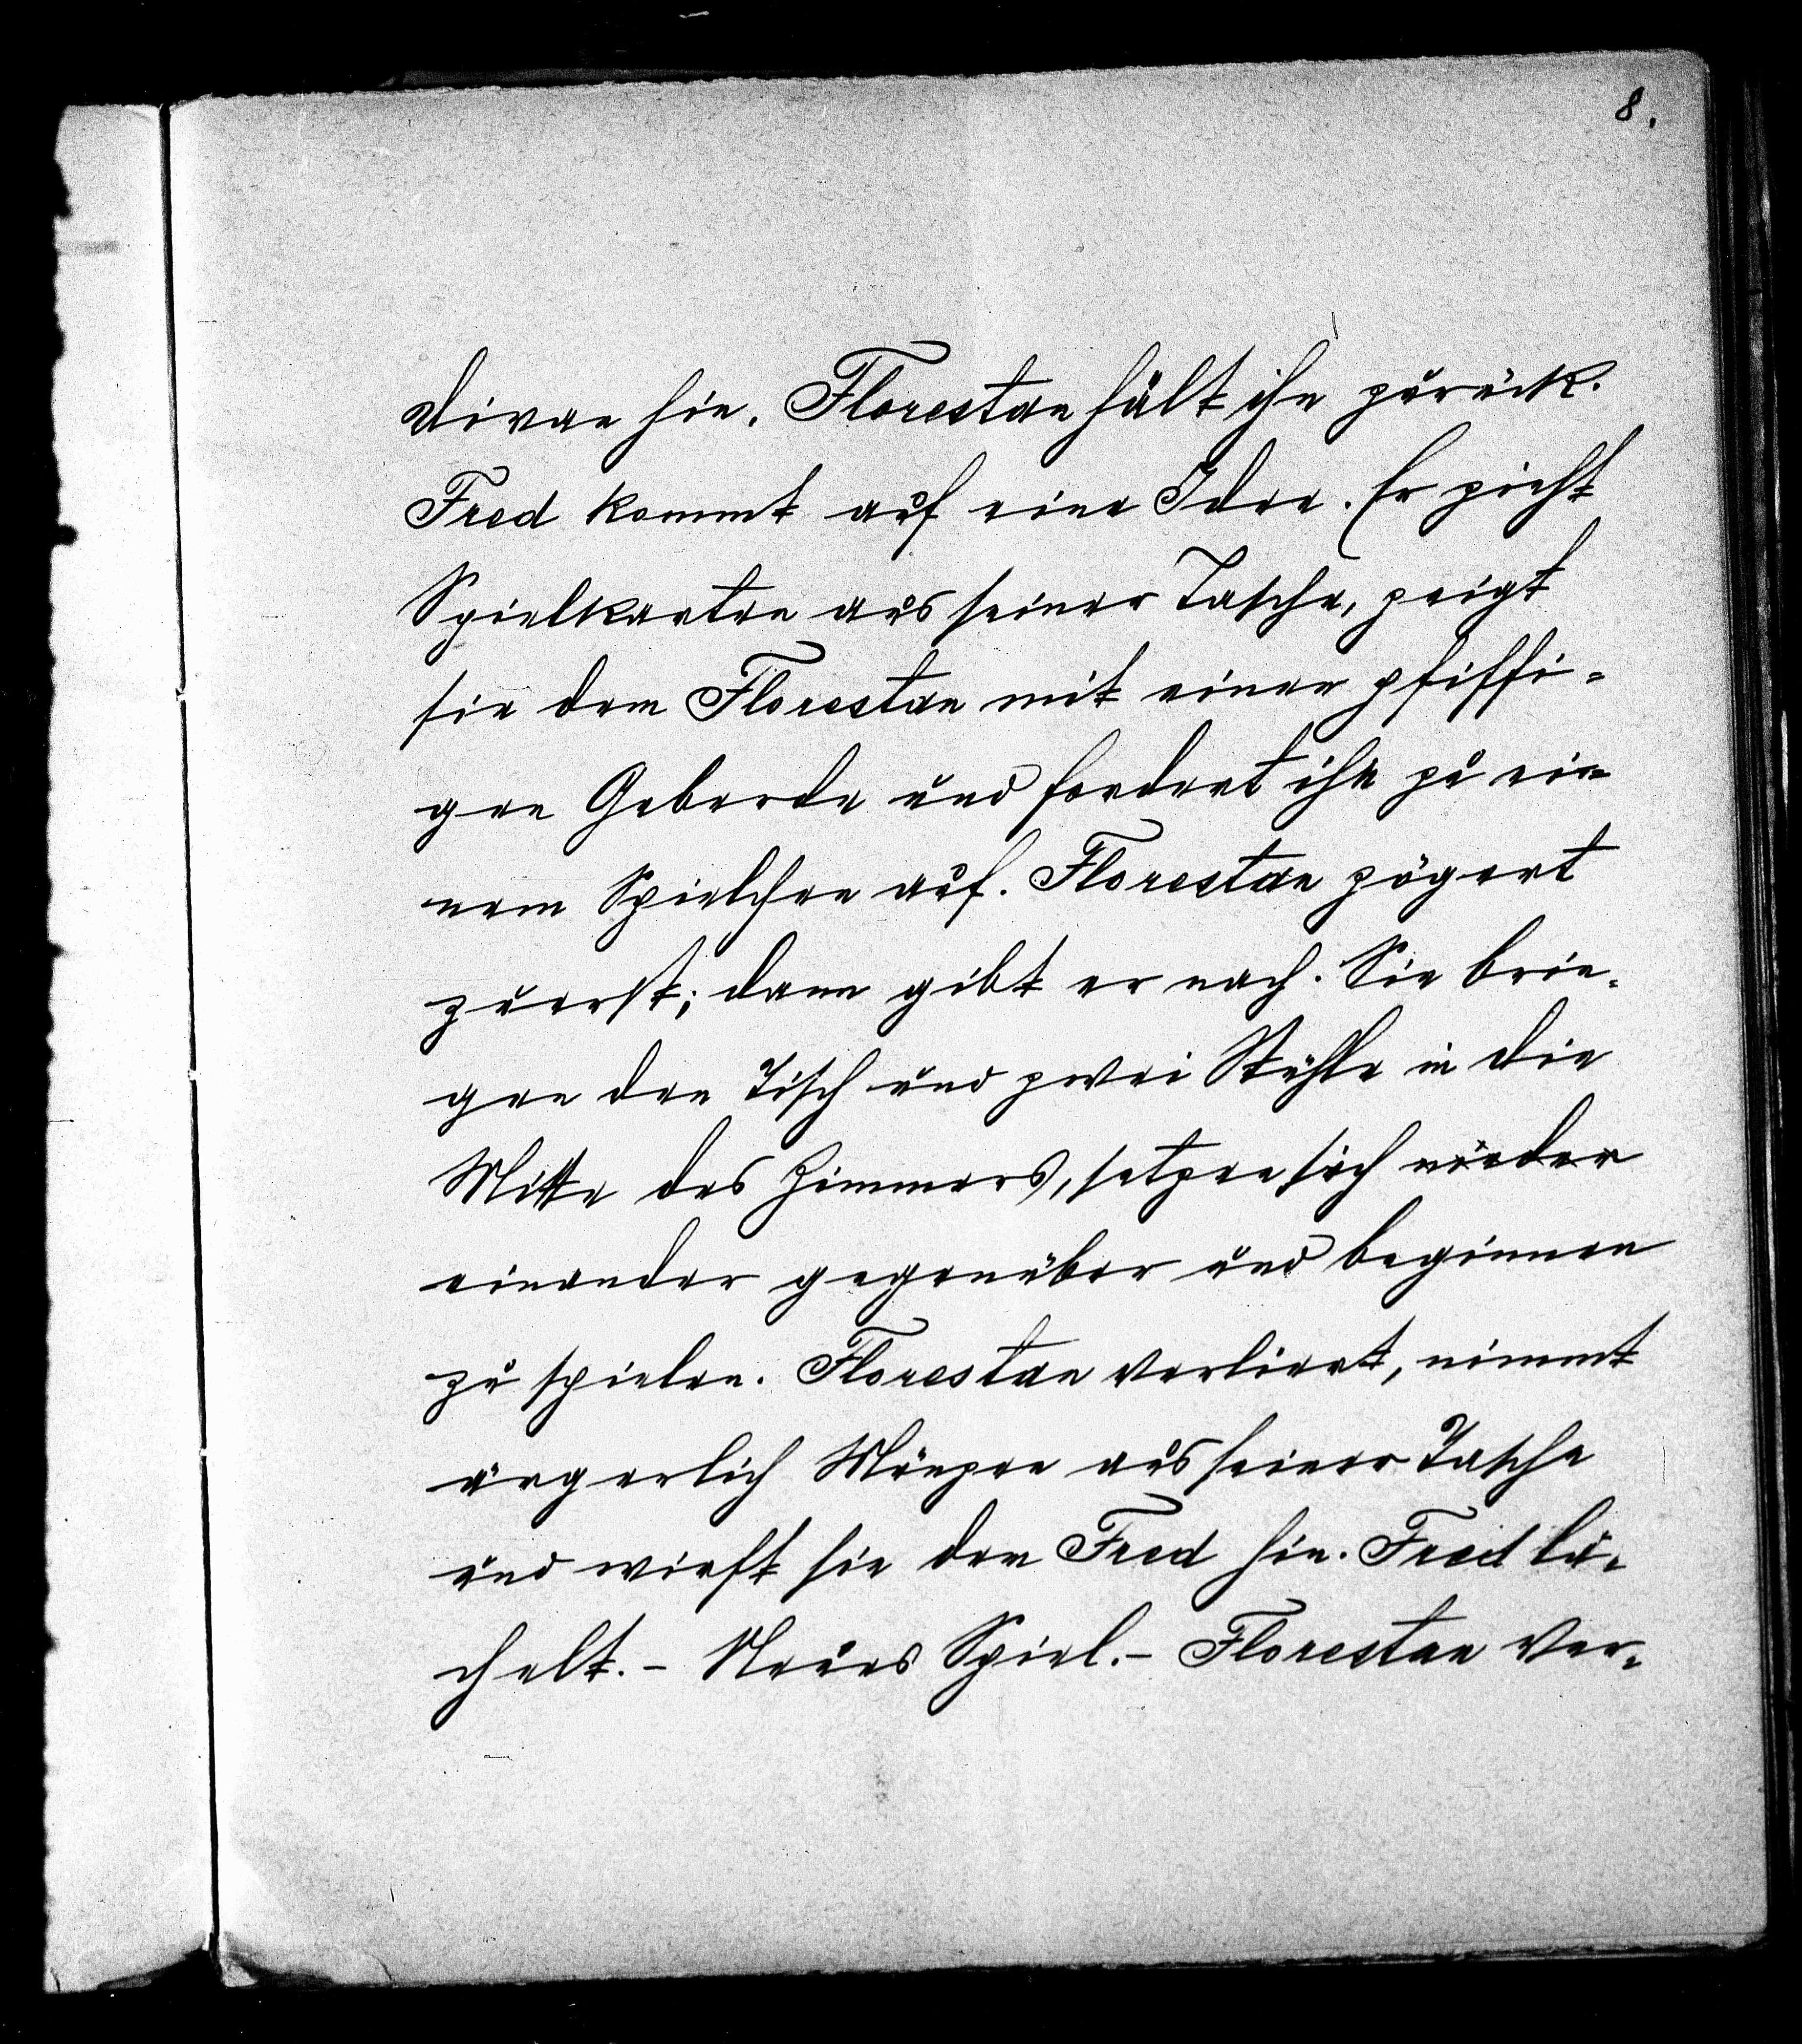 8.
Divan hin. Florestan hält ihn zurück.
Fred kommt auf eine Idee. Er zieht
Spielkarten aus seiner Tasche, zeigt
sie dem Florestan mit einer pfiffi-
gen Geberde und fordert ihn zu ei-
nem Spielchen auf. Florestan zögert
zuerst; dann gibt er nach. Sie brin-
gen den Tisch und zwei Stühle in die
Mitte des Zimmers, setzen sich nieder
einander gegenüber und beginnen
zu spielen. Florestan verliert, nimmt
ärgerlich Münzen aus seiner Tasche
und wirft sie dem Fred hin. Fred lä-
chelt. - Neues Spiel. - Florestan ver-